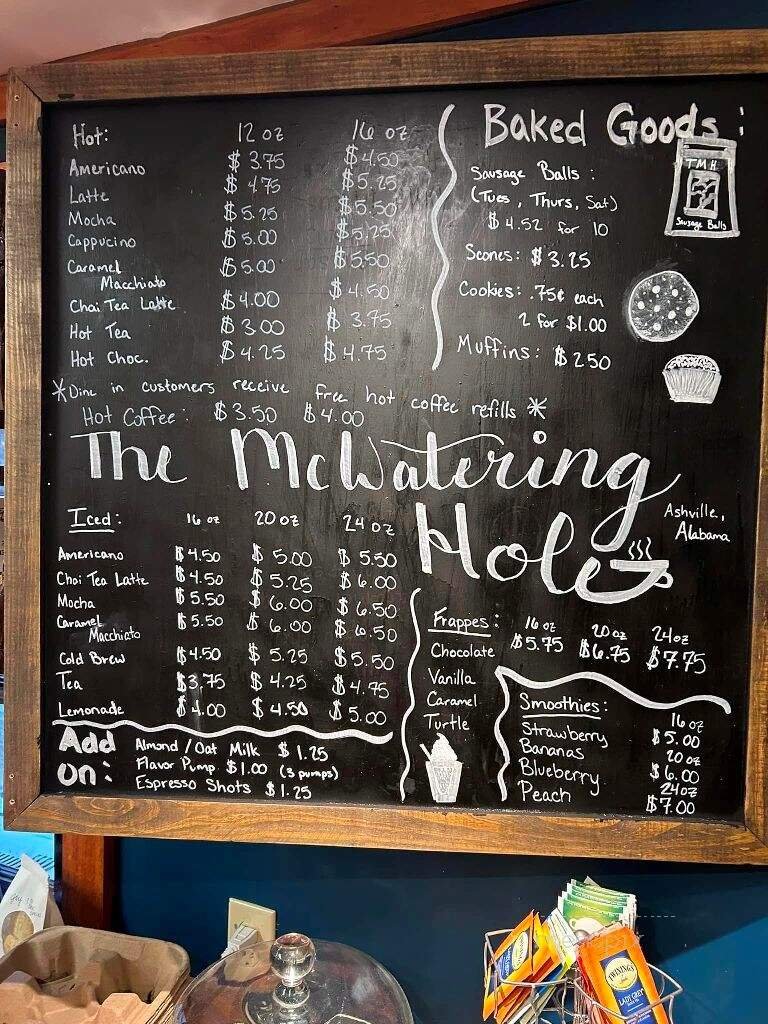 Hot: 12 oz 16 oz
Americano $3.75 $4.50
Latte $4.75 $5.25
Mocha $5.25 $5.50
Cappucino $5.00 $5.25
Caramel
Macchiato $5.00 $5.50
Chai Tea Latte $4.00 $4.50
Hot Tea $3.00 $3.75
Hot Choc. $4.25 $4.75
*Dine in customers receive free hot coffee refills *
Hot Coffee: $3.50 $4.00
Baked Goods:
Sausage Balls:
(Tues, Thurs, Sat)
$4.52 for 10
TMH
Sausage Balls
Scones: $3.25
Cookies: .75¢ each
2 for $1.00
Muffins: $2.50
The McWatering
Hole
Ashville,
Alabama
Iced: 16 oz 20 oz 24 oz
Americano $4.50 $5.00 $5.50
Chai Tea Latte $4.50 $5.25 $6.00
Mocha $5.50 $6.00 $6.50
Caramel
Macchiato $5.50 $6.00 $6.50
Cold Brew $4.50 $5.25 $5.50
Tea $3.75 $4.25 $4.75
Lemonade $4.00 $4.50 $5.00
Add
on:
Almond/Oat Milk $1.25
Flavor Pump $1.00 (3 pumps)
Espresso Shots $1.25
Frappes: 16 oz 20 oz 24 oz
$5.75 $6.75 $7.75
Chocolate
Vanilla
Caramel
Turtle
Smoothies:
Strawberry
Bananas
Blueberry
Peach
16 oz
$5.00
20 oz
$6.00
24 oz
$7.00
TWININGS
LADY GREY